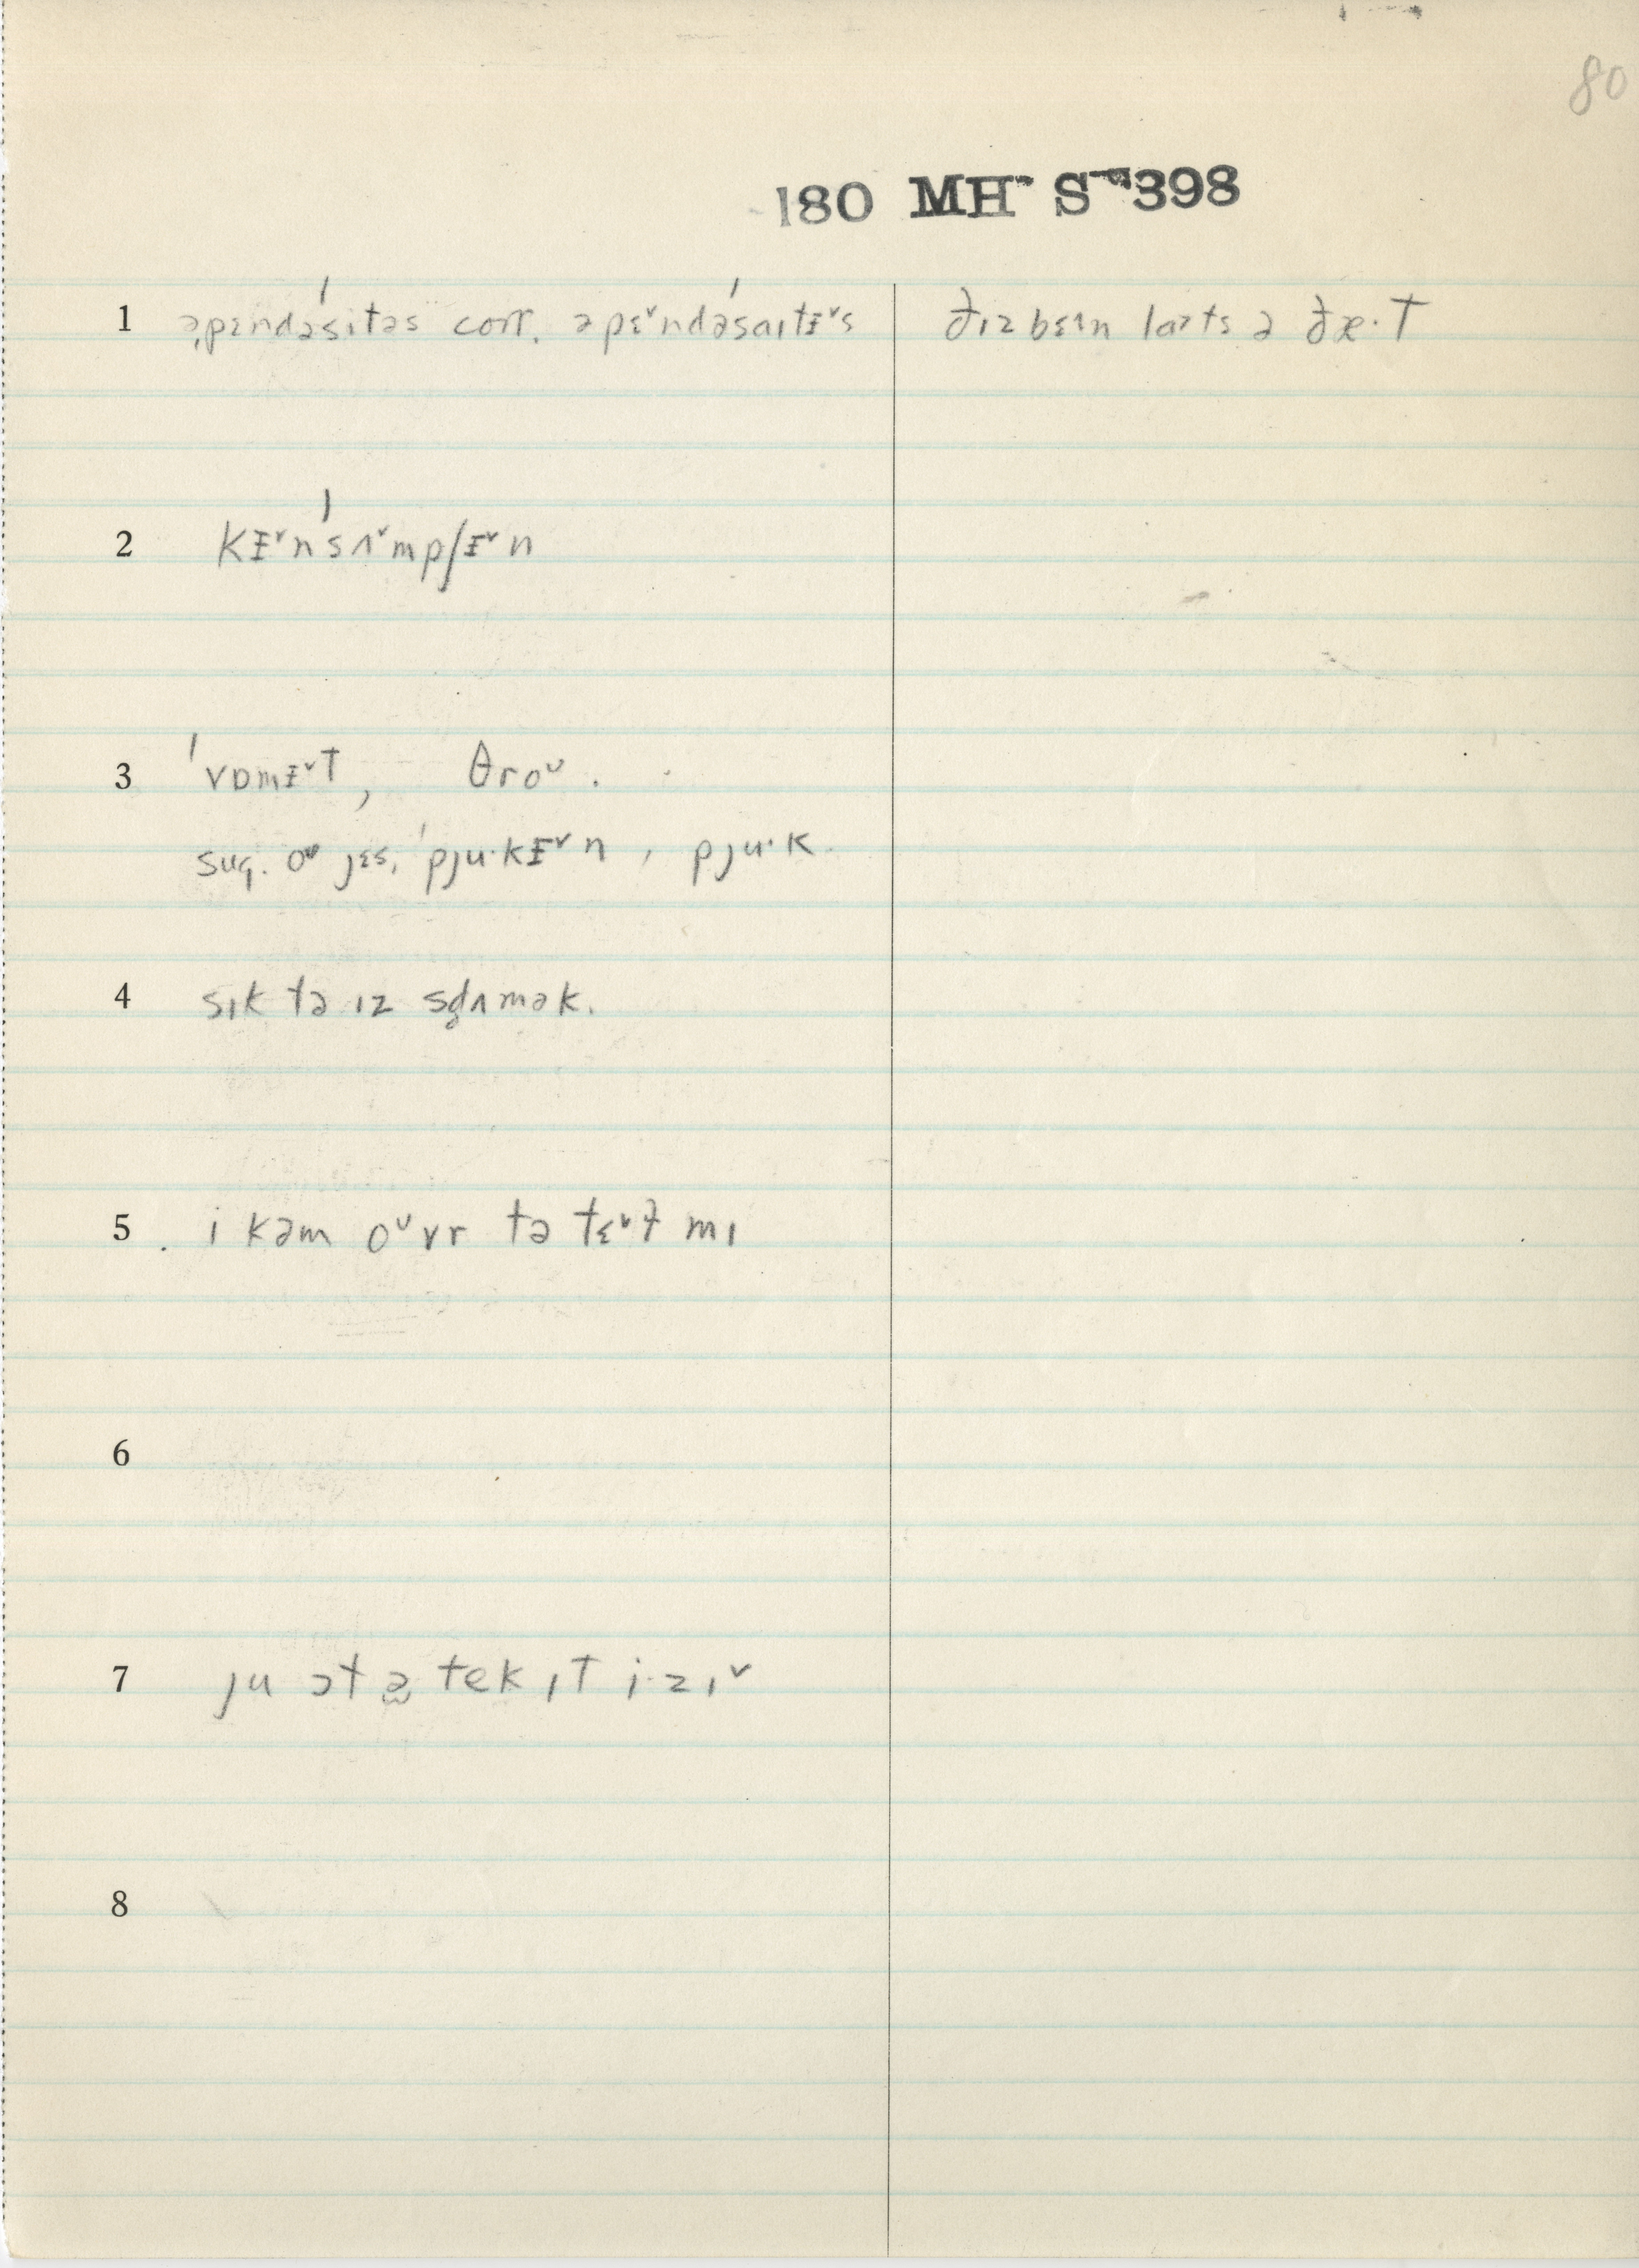 80
180 MH S 398
1 əpɛndəˈsitəs corr. əpɛ˅ndəˈsaɪtᵻ˅s ðɪz bɛɪn lɑɪts ə ðæ·t
2 kᵻ˅nˈsʌ˅mpʃᵻ˅n
3 ˈvɒmᵻ˅t, θroᴜ.
sug. oᴜ jɛs, ˈpju·kᵻ˅n, pju·k
4 sɪk tə ɪz sd̥ʌmək.
5 i kəm oᴜvr tə tɛ˅ɫ mɪ
6
7 ju ɔt ə tek ɪt i·zɪ˅
8